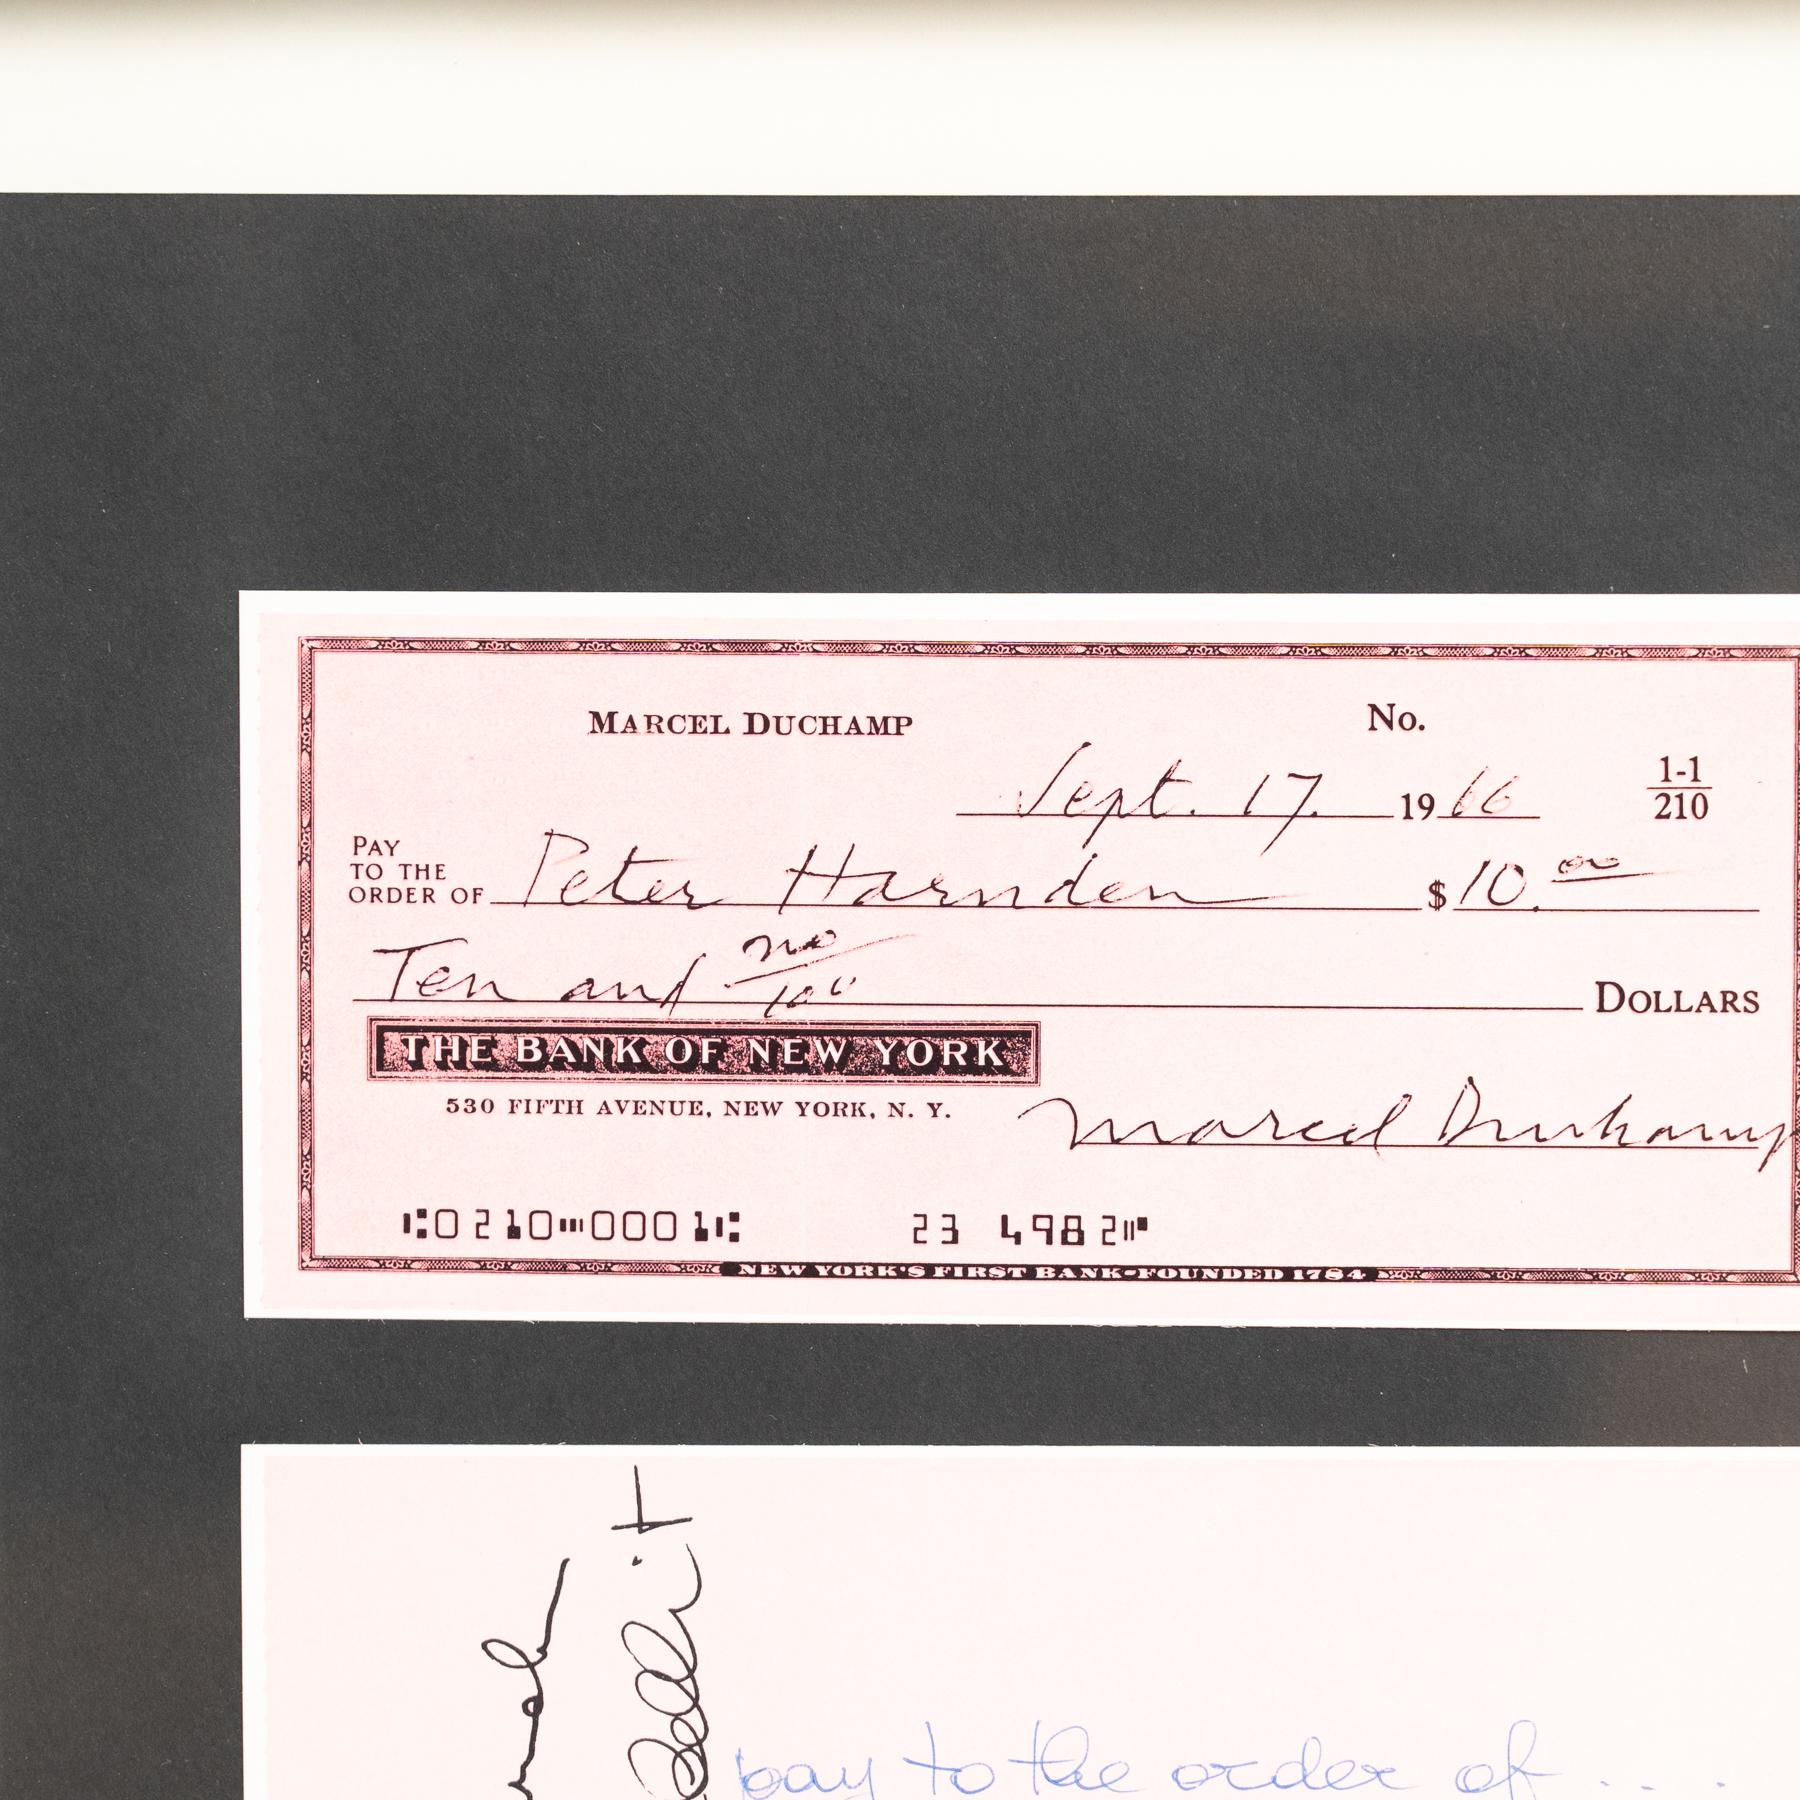 MARCEL DUCHAMP
No.
Sept. 17. 1966
1-1
210
PAY
TO THE
ORDER OF Peter Harnden $10.00
Ten and no/100 DOLLARS
THE BANK OF NEW YORK
530 FIFTH AVENUE, NEW YORK, N. Y.
Marcel Duchamp
⑆0210⑉0001⑆ 23 4982⑈
NEW YORK'S FIRST BANK-FOUNDED 1784
pay to the order of ...